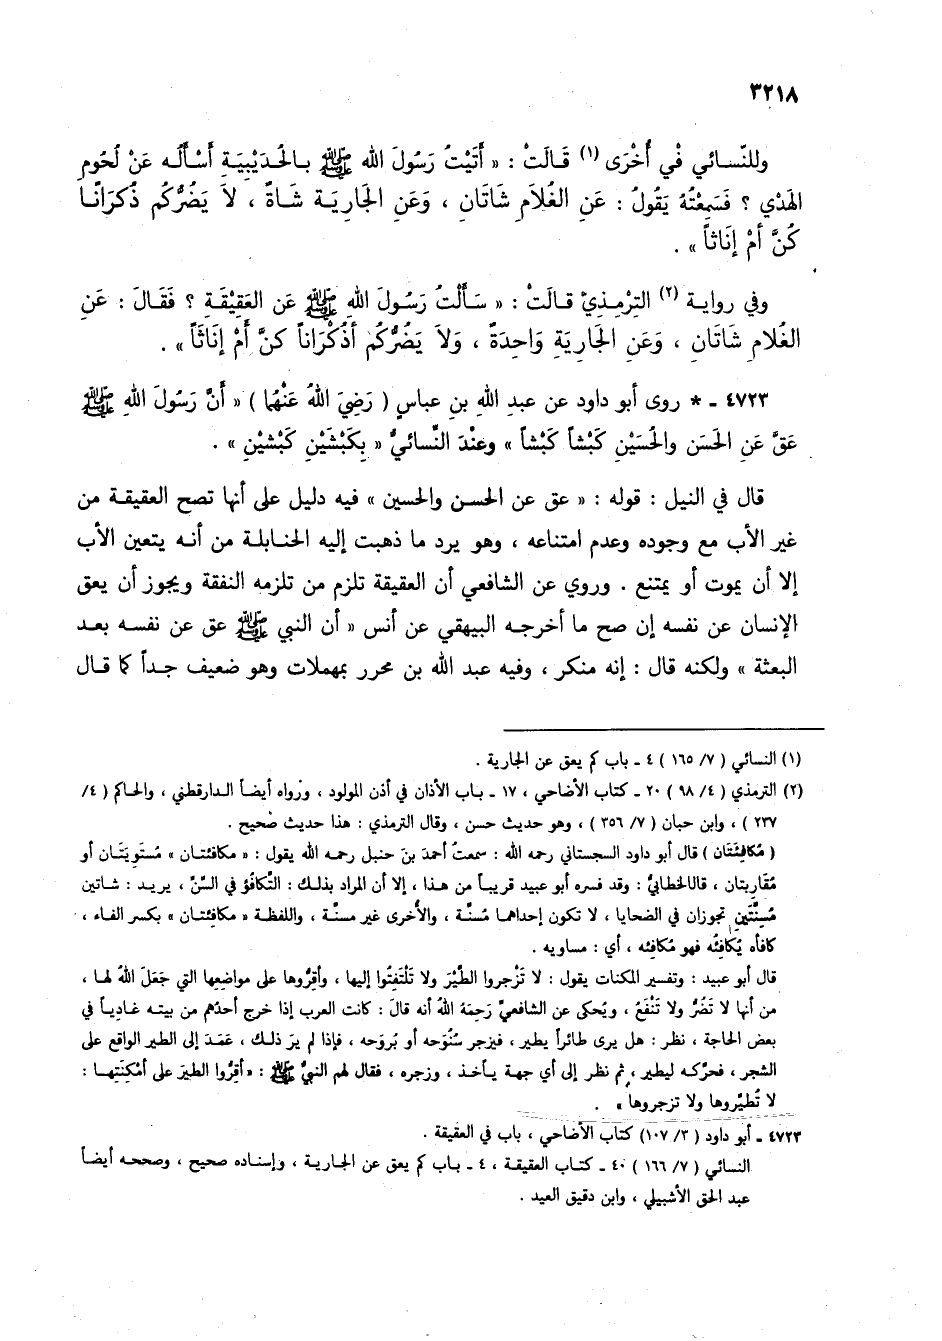 ٣٢١٨
وللنّسائي فْي أُخْرَى (١) قَالَتْ : « أَتَيْتُ رَسُولَ الله ﷺ بالحُدَيْبِيَةِ أَسْأَلُه عَنْ لُحُومِ
الهَدْي ؟ فَسَمِعْتُهُ يَقُولُ : عَنِ الغُلَامِ شَاتَانِ ، وَعَنِ الجَارِيَة شَاةً ، لاَ يَضُرُّكُم ذُكرَانًا
كُنَّ أَمْ إنَاثاً » .
وفي روايـة (٢) التِرْمِذِيْ قـالَتْ : « سَـأَلْتُ رَسُـولَ اللهِ ﷺ عَن العَقِيْقَةِ ؟ فَقَـالَ : عَنِ
الغُلامِ شَاتَانِ ، وَعَنِ الجَارِيَةِ وَاحِدَةً ، وَلاَ يَضُرُّكُم أَذُكْرَاناً كنَّ أَمْ إنَاثَاً » .
٤٧٢٣ ـ * روى أبو داود عن عبدِ الله بنِ عباسٍ ( رَضِيَ اللهُ عَنْهُما ) « أَنَّ رَسُولَ اللهِ ﷺ
عَقَّ عَنِ الحَسَن والحُسَيْنِ كَبْشاً كَبْشاً » وعنْدَ النَّسائيُّ « بِكَبْشَيْنِ كَبْشيْنِ » .
قال في النيل : قوله : « عق عن الحسن والحسين » فيه دليل على أنها تصح العقيقـة من
غير الأب مع وجوده وعدم امتناعه ، وهو يرد ما ذهبت إليه الحنابلـة من أنـه يتعين الأب
إلا أن يموت أو يمتنع . وروي عن الشافعي أن العقيقة تلزم من تلزمه النفقة ويجوز أن يعق
الإنسان عن نفسه إن صح ما أخرجـه البيهقي عن أنس « أن النبي ﷺ عق عن نفسـه بعـد
البعثة » ولكنه قال : إنه منكر ، وفيه عبد الله بن محرر بمهملات وهو ضعيف جـداً كما قـال
(١) النسائي ( ٧/ ١٦٥ ) ٤ ـ باب كم يعق عن الجارية .
(٢) الترمذي ( ٤/ ٩٨ ) ٢٠ ـ كتاب الأضاحي ، ١٧ ـ باب الأذان في أذن المولود ، ورواه أيضـاً الـدارقطني ، والحاكم ( ٤/
٢٣٧ ) ، وابن حبان ( ٧/ ٣٥٦ ) ، وهو حديث حسن ، وقال الترمذي : هذا حديث صحيح .
( مُكافِئَتَان ) قال أبو داود السجستاني رحمه الله : سمعتُ أحمدَ بنَ حنبل رحمه الله يقول : « مكافئتـان » مُستَوِيَتَـان أو
مُقَارِبتان ، قالالخطابيُّ : وقد فسره أبو عبيد قريبـاً من هـذا ، إلا أن المراد بذلـك : التَّكافُؤ في السِّنِّ ، يريـد : شـاتين
مُسِنَّتَينِ تجوزان في الضحايا ، لا تكون إحداهـا مُسنَّـة ، والأخرى غير مسنّـة ، واللفظـة « مكافِئتـان » بكسر الفـاء ،
كافأه يُكافِئُه فهو مُكافِئه ، أي : مساويه .
قال أبو عبيد : وتفسير المكنات يقول : لا تَزْجروا الطَّيْرَ ولا تَلْتَفِتُوا إليها ، وأَقِرُّوها على مواضعِها التي جَعَلَ اللهُ لهـا ،
من أنها لا تَضُرُّ ولا تَنْفَعُ ، ويُحكى عن الشافعيِّ رَحِمَهُ اللهُ أنه قالَ : كانت العرب إذا خرج أحدُهم من بيتـه غـاديـاً في
بعض الحاجة ، نظر : هل يرى طائراً يطير ، فيزجر سُنُوْحه أو بُروَحه ، فإذا لم يرَ ذلـك ، عَمَـدَ إلى الطير الواقع على
الشجر ، فحرّكـه ليطير ، ثم نظر إلى أي جهـة يـأخـذ ، وزجره ، فقال لهم النبيُّ ﷺ : « أقِرُّوا الطيرَ على أمْكِنَتِهـا :
لا تُطيّروها ولا تزجروها » .
٤٧٢٣ ـ أبو داود ( ٣/ ١٠٧) كتاب الأضاحي ، باب في العقيقة .
النسائي ( ٧/ ١٦٦ ) ٤٠ ـ كتـاب العقيقـة ، ٤ ـ بـاب كم يعق عن الجاريـة ، وإسناده صحيح ، وصححـه أيضـاً
عبد الحق الأشبيلي ، وابن دقيق العيد .